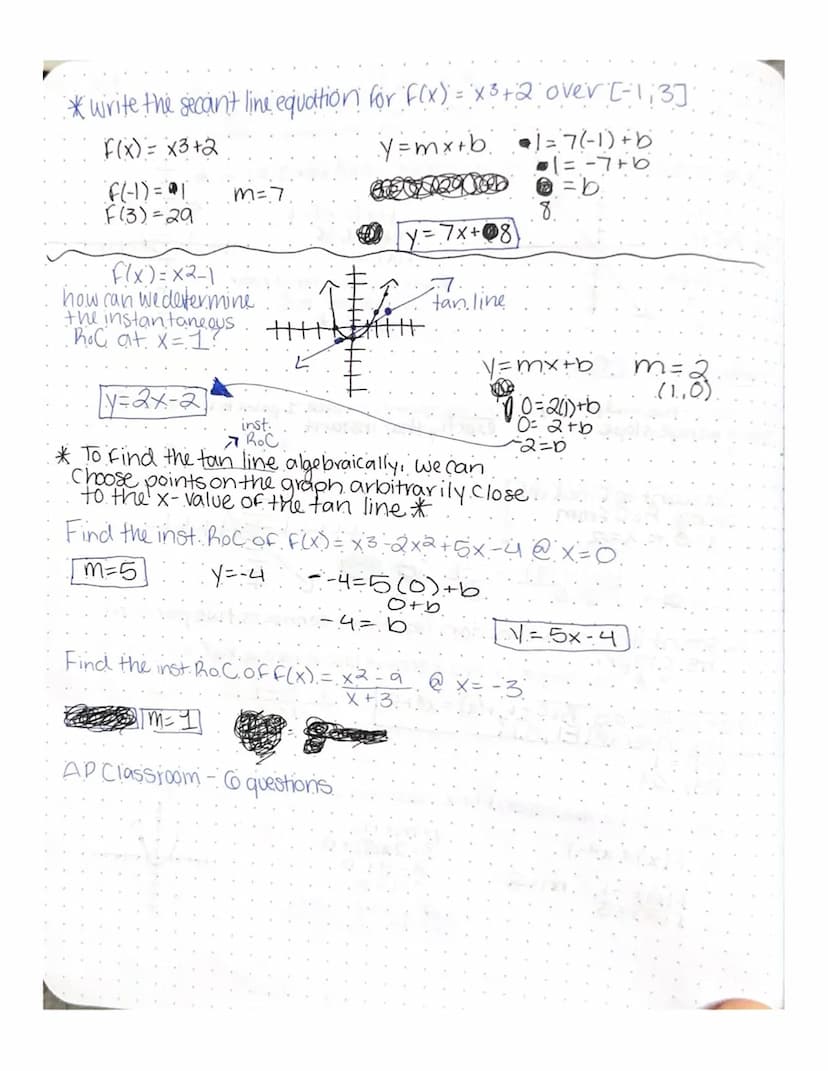 * Write the secant line equation for f(x) = x3+2 over [-1,3]
f(x) = x3+2
f(-1) = 1 m=7
f(3) = 29
y=mx+b
1=7(-1)+b
1= -7+b
=b
8
y=7x+8
f(x)=x2-1
how can we determine
the instantaneous
RoC at x=1?
tan.line
y=2x-2
y=mx+b m=2
(1,0)
0=2(1)+b
0= 2+b
-2=b
inst.
RoC
* To find the tan line algebraically, we can
choose points on the graph arbitrarily close
to the x-value of the tan line *
Find the inst. RoC of f(x)= x3-2x2+5x-4 @ x=0
m=5 y=-4 -4=5(0)+b
0+b
-4= b
y=5x-4
Find the inst. RoC of f(x)= x2-9 @ x= -3
x+3
m=1
AP Classroom - 6 questions